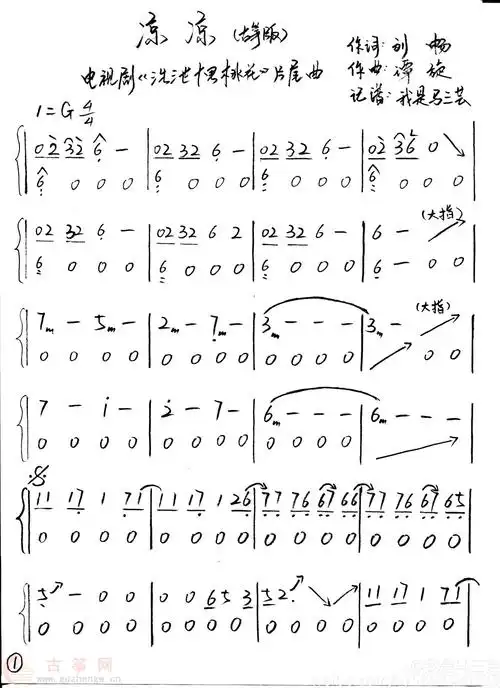 凉凉(古筝版)
作词:刘畅
电视剧《三生三世十里桃花》片尾曲
作曲:谭旋
记谱:我是马三芸
1=G 4/4
02 32 6 - | 02 32 6 - | 02 32 6 - | 02 36 0
6 0 0 0 | 6 0 0 0 | 6 0 0 0 | 6 0 0 0
(大指)
02 32 6 - | 02 32 6 2 | 02 32 6 - | 6 -
6 0 0 0 | 6 0 0 0 | 6 0 0 0 | 6 - 0 0
(大指)
7m - 5m - | 2m - 7m - | 3m - - - | 3m -
0 0 0 0 | 0 0 0 0 | 0 0 0 0 | 0 0
7 - i - | 2 - 7 - | 6m - - - | 6m - - -
0 0 0 0 | 0 0 0 0 | 0 0 0 0
11 17 1 71 | 11 17 1 26 | 77 76 67 66 | 77 76 67 65
0 0 0 0 | 0 0 0 0 | 0 0 0 0 | 0 0 0 0
5 - 0 0 | 0 0 65 3 | 52. | 11 17 1 71
0 0 0 0 | 0 0 0 0 | 0 0 0 0 | 0 0 0 0
①
古筝网
www.guzhengw.cn